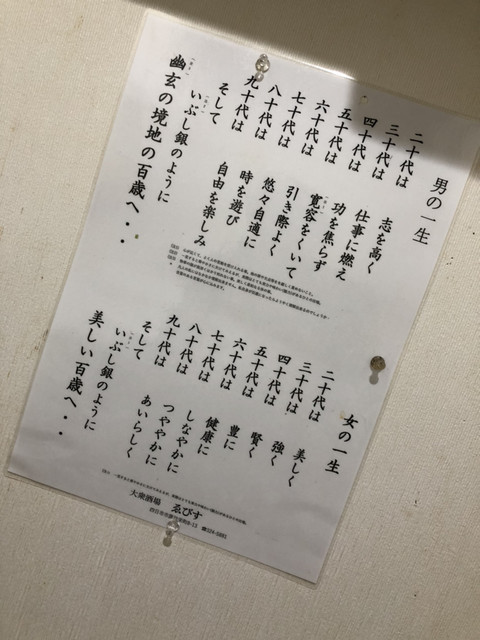 男の一生
二十代は 志を高く
三十代は 仕事に燃え
四十代は 功を焦らず
五十代は 寛容をくいて
六十代は 引き際よく
七十代は 悠々自適に
八十代は 時を遊び
九十代は 自由を楽しみ
そして
いぶし銀のように
幽玄の境地の百歳へ・・
女の一生
二十代は 美しく
三十代は 強く
四十代は 賢く
五十代は 豊に
六十代は 健康に
七十代は しなやかに
八十代は つややかに
九十代は あいらしく
そして
いぶし銀のように
美しい百歳へ・・
大衆酒場 ゑびす